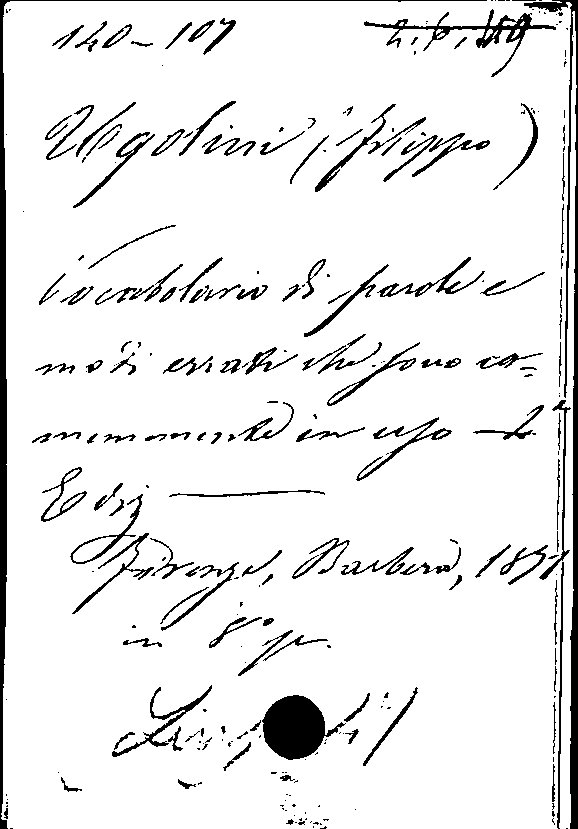 140-107 2.6.149
Ugolini (Filippo)
Vocabolario di parole e
modi errati che sono co-
munemente in uso - 2ª
Ediz
Firenze, Barbera,
in 8° p.